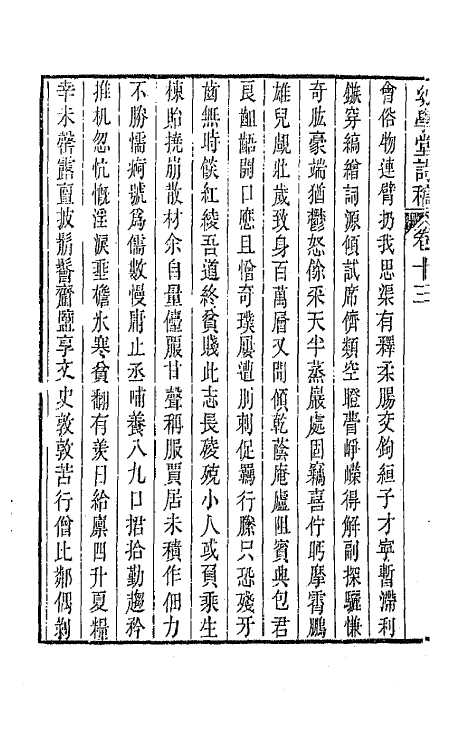 幼學堂詩稿 卷十三
會俗物連臂扔我思渠有釋柔腸交鉤絙子才寕暫滯利
鏃穿縞繪詞源傾試席儕類空瞪瞢崢嶸得解副探驪慊
奇肱豪端猶鬱怒條采天半蒸巖處固竊喜佇眄摩霄鵬
雄兒覷壯歲致身百萬層又聞傾乾蔭庵廬阻賓典包君
艮齟齬開口應且憎奇璞屢遭刖刺促羈行縢只恐殘牙
齒無時餤紅綾吾道終貧賤此志長磳殑小人或負乘生
棟貽撓崩散材余自量儓服甘聲稱服賈居未積作佃力
不勝懦痾號爲儒數慢庸止丞哺養八九口捃拾勤趨矜
推机忽忼慨淫淚垂簷氷寒貧翻有羨日給廪四升夏糧
幸未罄露亶披鬅鬙齏鹽享文史敦敦苦行僧比鄰偶剝